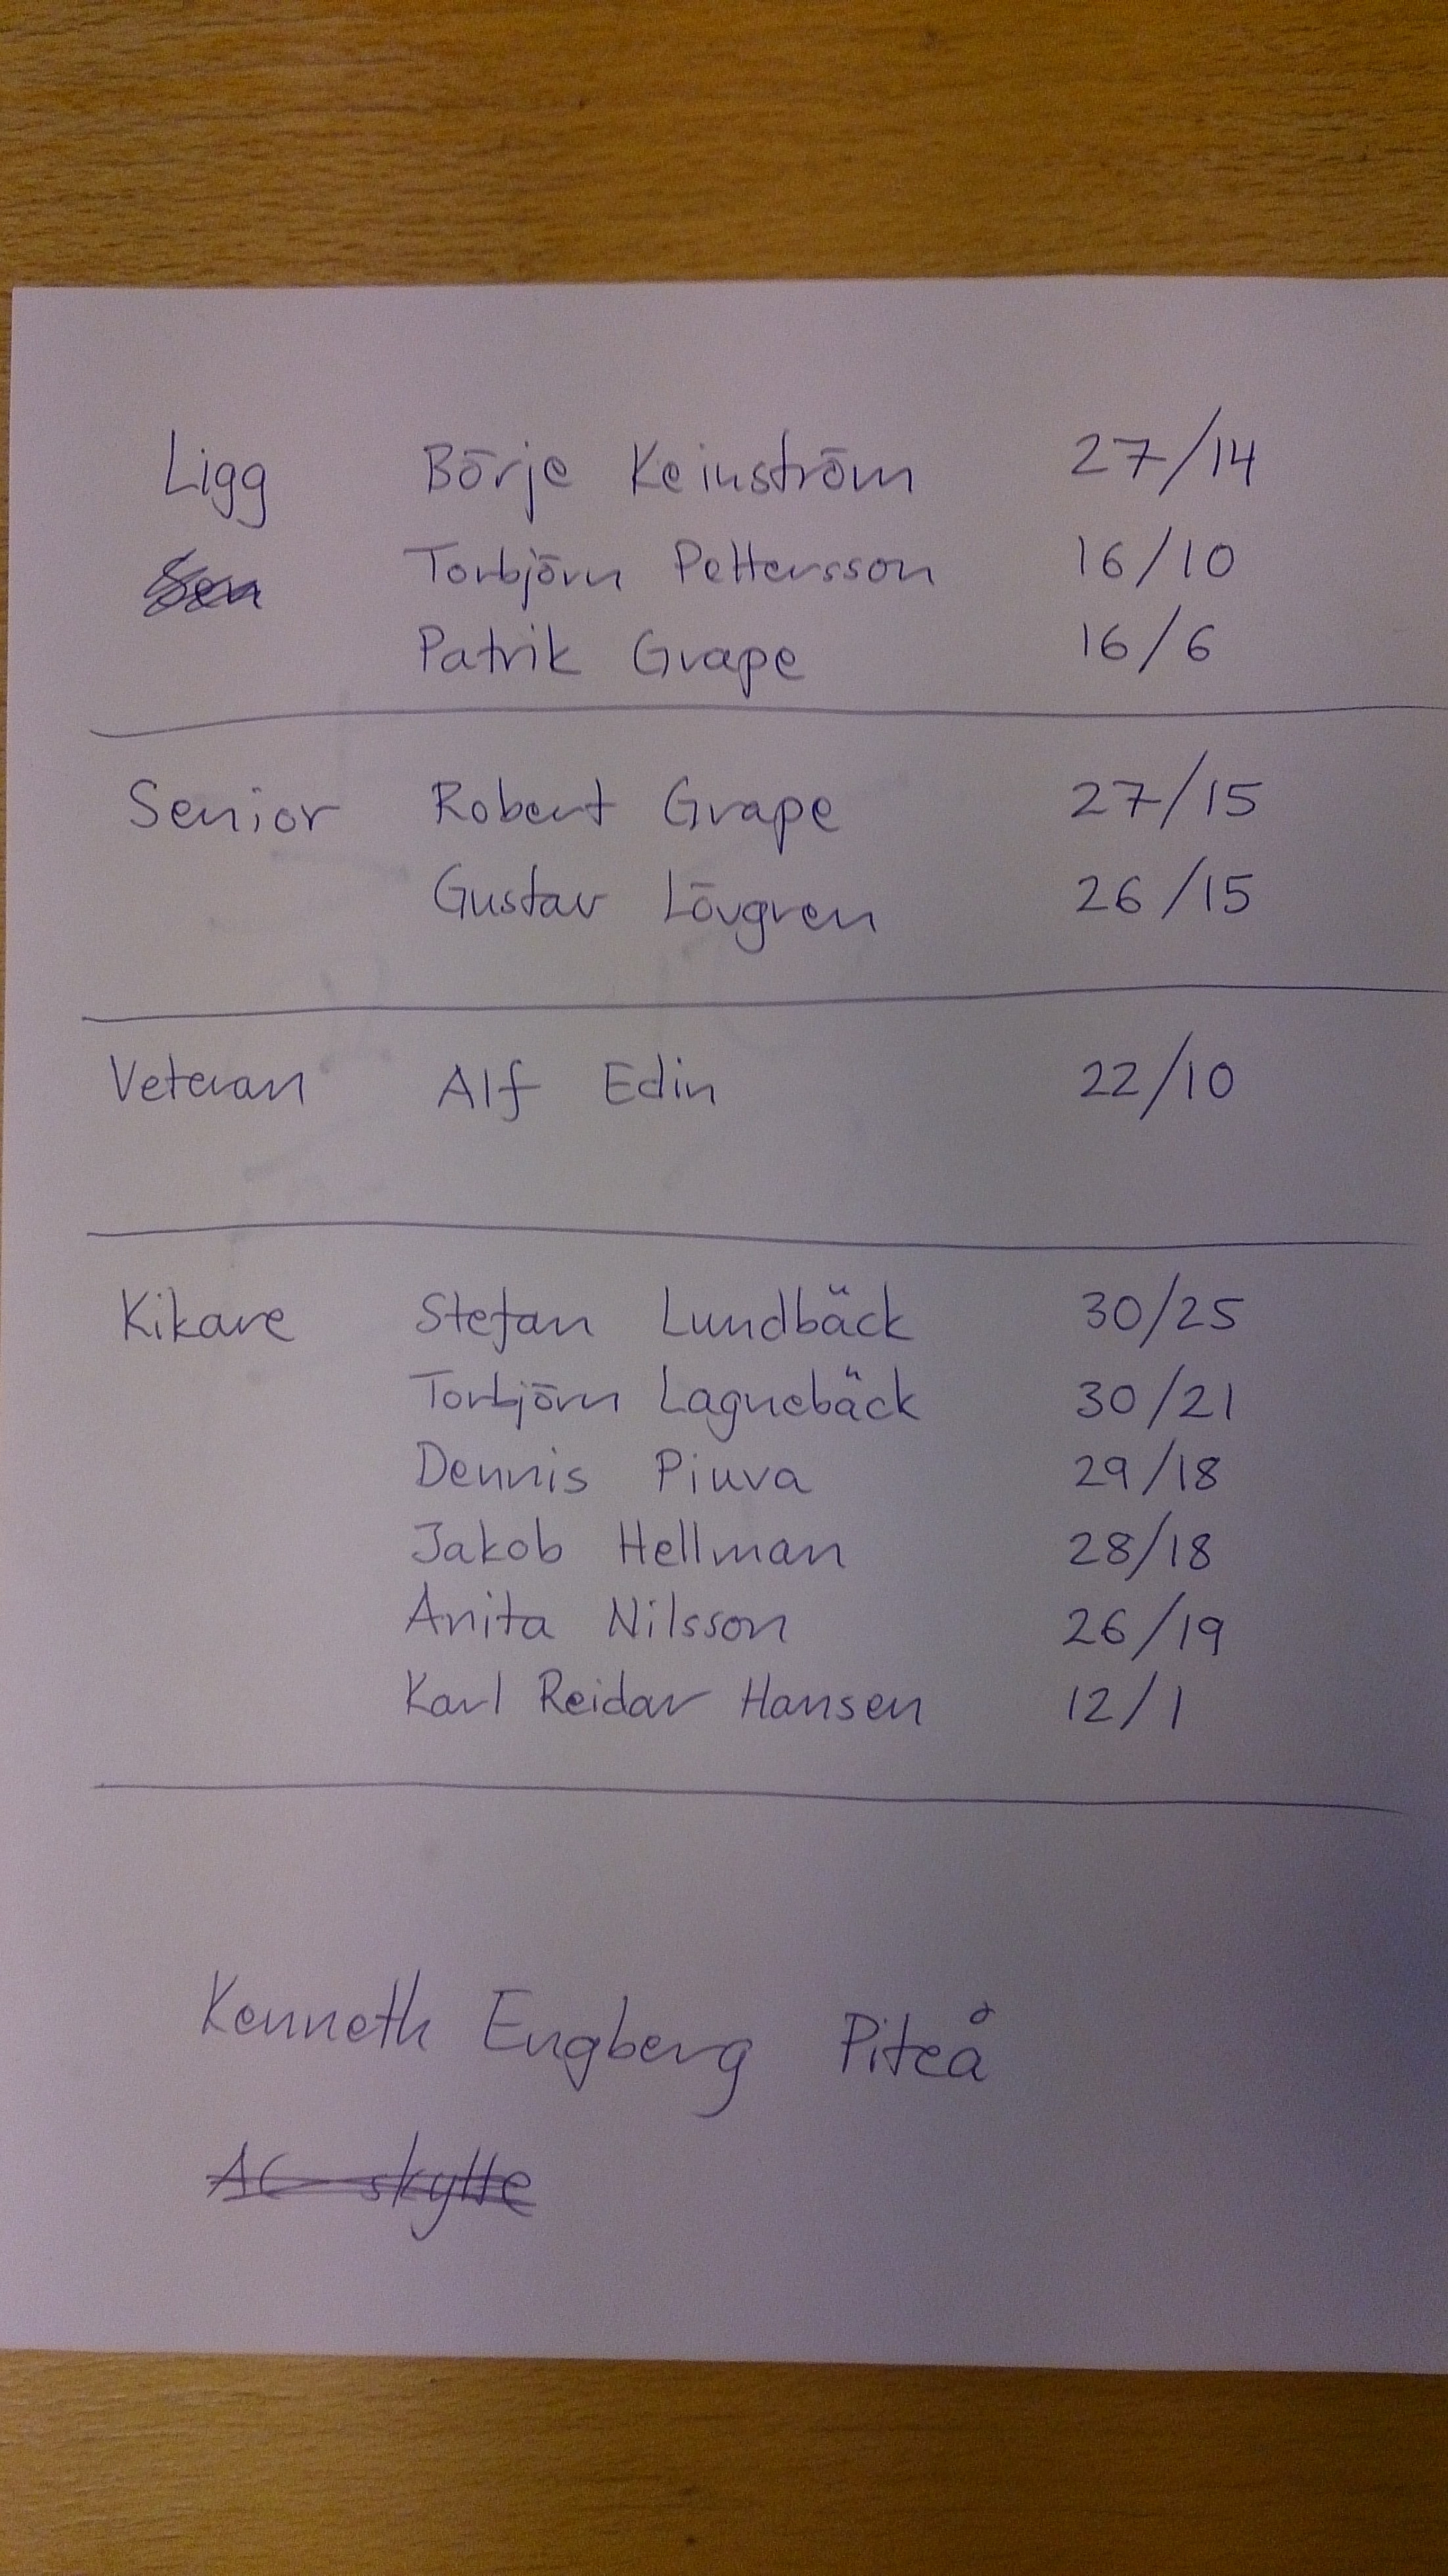 Ligg Börje Keinström 27/14
Sen Torbjörn Pettersson 16/10
Patrik Grape 16/6
Senior Robert Grape 27/15
Gustav Lövgren 26/15
Veteran Alf Edin 22/10
Kikare Stefan Lundbäck 30/25
Torbjörn Lagnebäck 30/21
Dennis Piuva 29/18
Jakob Hellman 28/18
Anita Nilsson 26/19
Karl Reidar Hansen 12/1
Kenneth Engberg Piteå
AC skytte